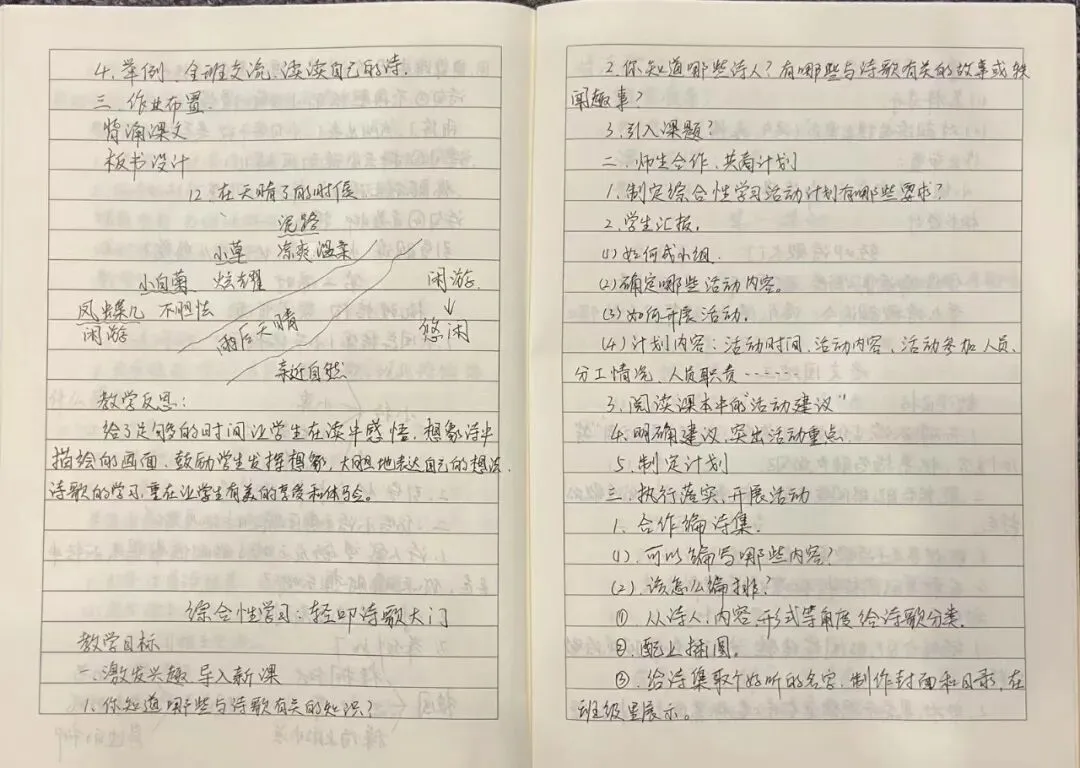 4. 举例、全班交流、读读自己的诗.
三、作业布置.
背诵课文
板书设计
12 在天晴了的时候
泥路
小草 凉爽温柔
小白菊 炫耀 闲游
凤蝶儿 不胆怯 ↓
闲游 雨后天晴 悠闲
亲近自然
教学反思:
给了足够的时间让学生在读中感悟、想象诗中
描绘的画面、鼓励学生发挥想象,大胆地表达自己的想法
诗歌的学习,重在让学生有美的享受和体验。
综合性学习:轻叩诗歌大门
教学目标
一、激发兴趣 导入新课
1. 你知道哪些与诗歌有关的知识?
2. 你知道哪些诗人?有哪些与诗歌有关的故事或轶
闻趣事?
3. 引入课题?
二、师生合作、共商计划
1. 制定综合性学习活动计划有哪些要求?
2. 学生汇报。
(1) 如何成小组.
(2) 确定哪些活动内容。
(3) 如何开展活动.
(4) 计划内容:活动时间、活动内容、活动参加人员、
分工情况、人员职责……
3. 阅读课本中的"活动建议"
4. 明确建议、突出活动重点.
5. 制定计划
三、执行落实、开展活动
1. 合作编诗集.
(1). 可以编写哪些内容?
(2). 该怎么编排?
① 从诗人、内容、形式等角度给诗歌分类.
②. 配上插图。
③. 给诗集取个好听的名字.制作封面和目录,在
班级里展示。